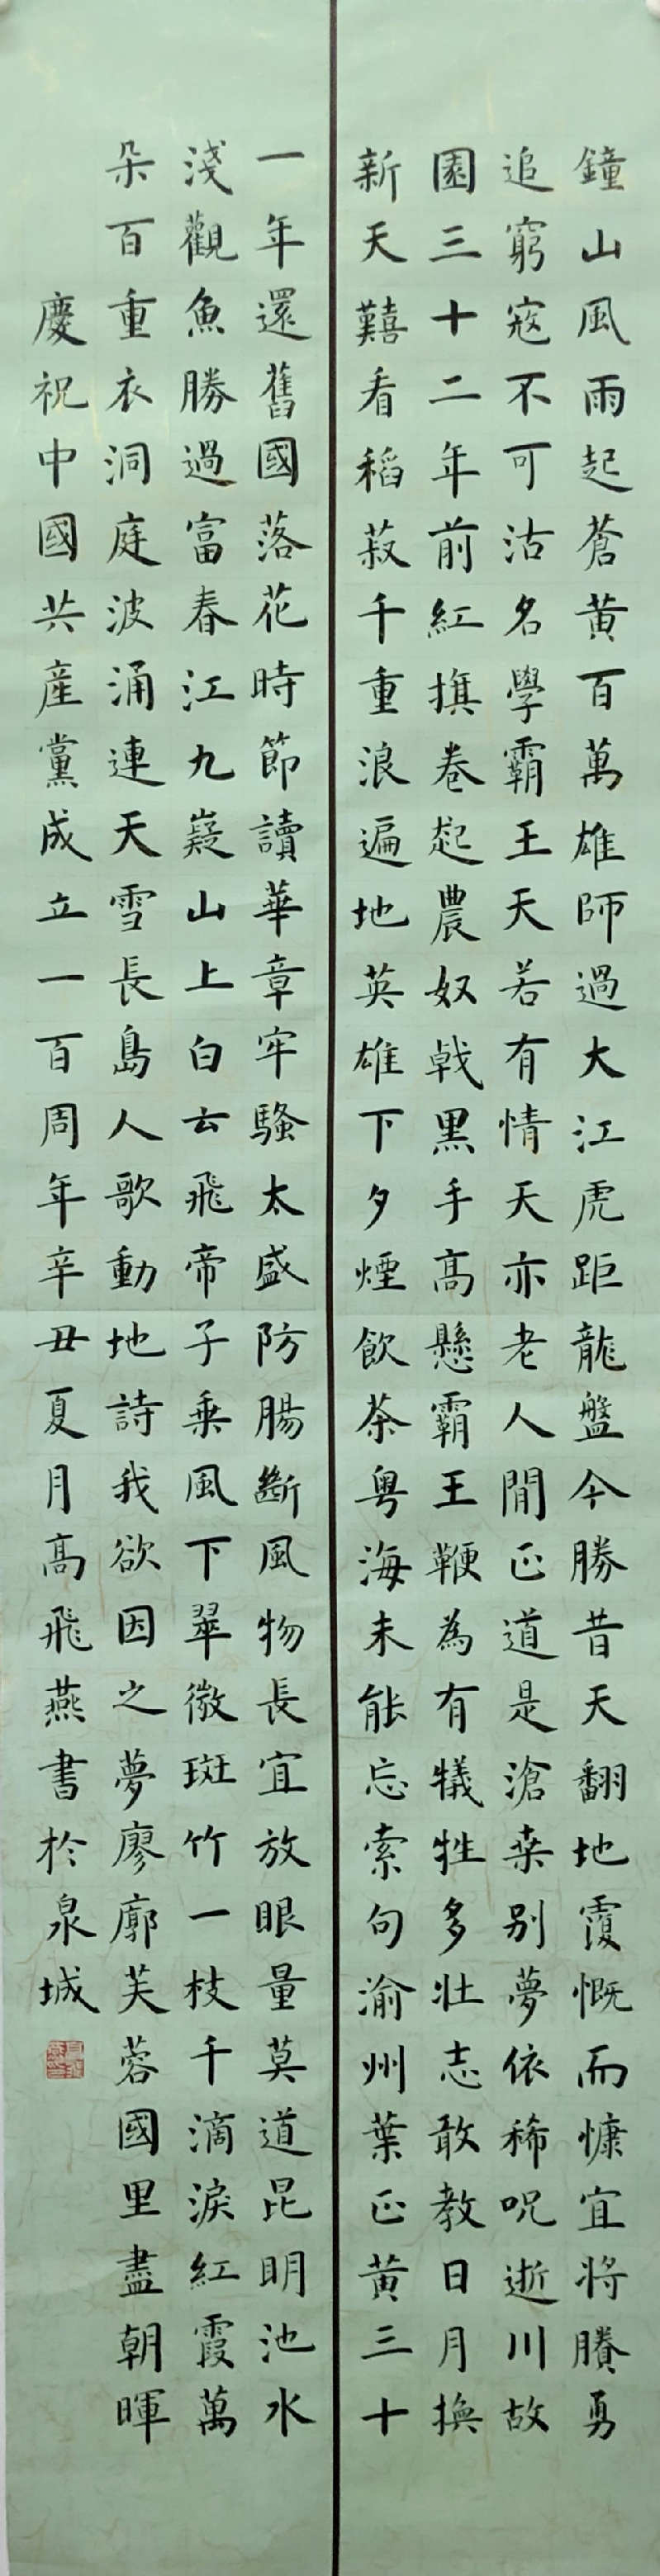 鐘山風雨起蒼黄百萬雄師過大江虎距龍盤今勝昔天翻地覆慨而慷宜將賸勇
追窮寇不可沽名學霸王天若有情天亦老人閒正道是滄桑别夢依稀呪逝川故
園三十二年前紅旗卷起農奴戟黑手高懸霸王鞭為有犧牲多壯志敢教日月換
新天囍看稻菽千重浪遍地英雄下夕煙飲茶粤海未能忘索句渝州葉正黄三十
一年還舊國落花時節讀華章牢騷太盛防腸斷風物長宜放眼量莫道昆明池水
淺觀魚勝過富春江九嶷山上白云飛帝子乘風下翠微斑竹一枝千滴淚紅霞萬
朵百重衣洞庭波涌連天雪長島人歌動地詩我欲因之夢廖廓芙蓉國里盡朝暉
慶祝中國共産黨成立一百周年辛丑夏月高飛燕書於泉城